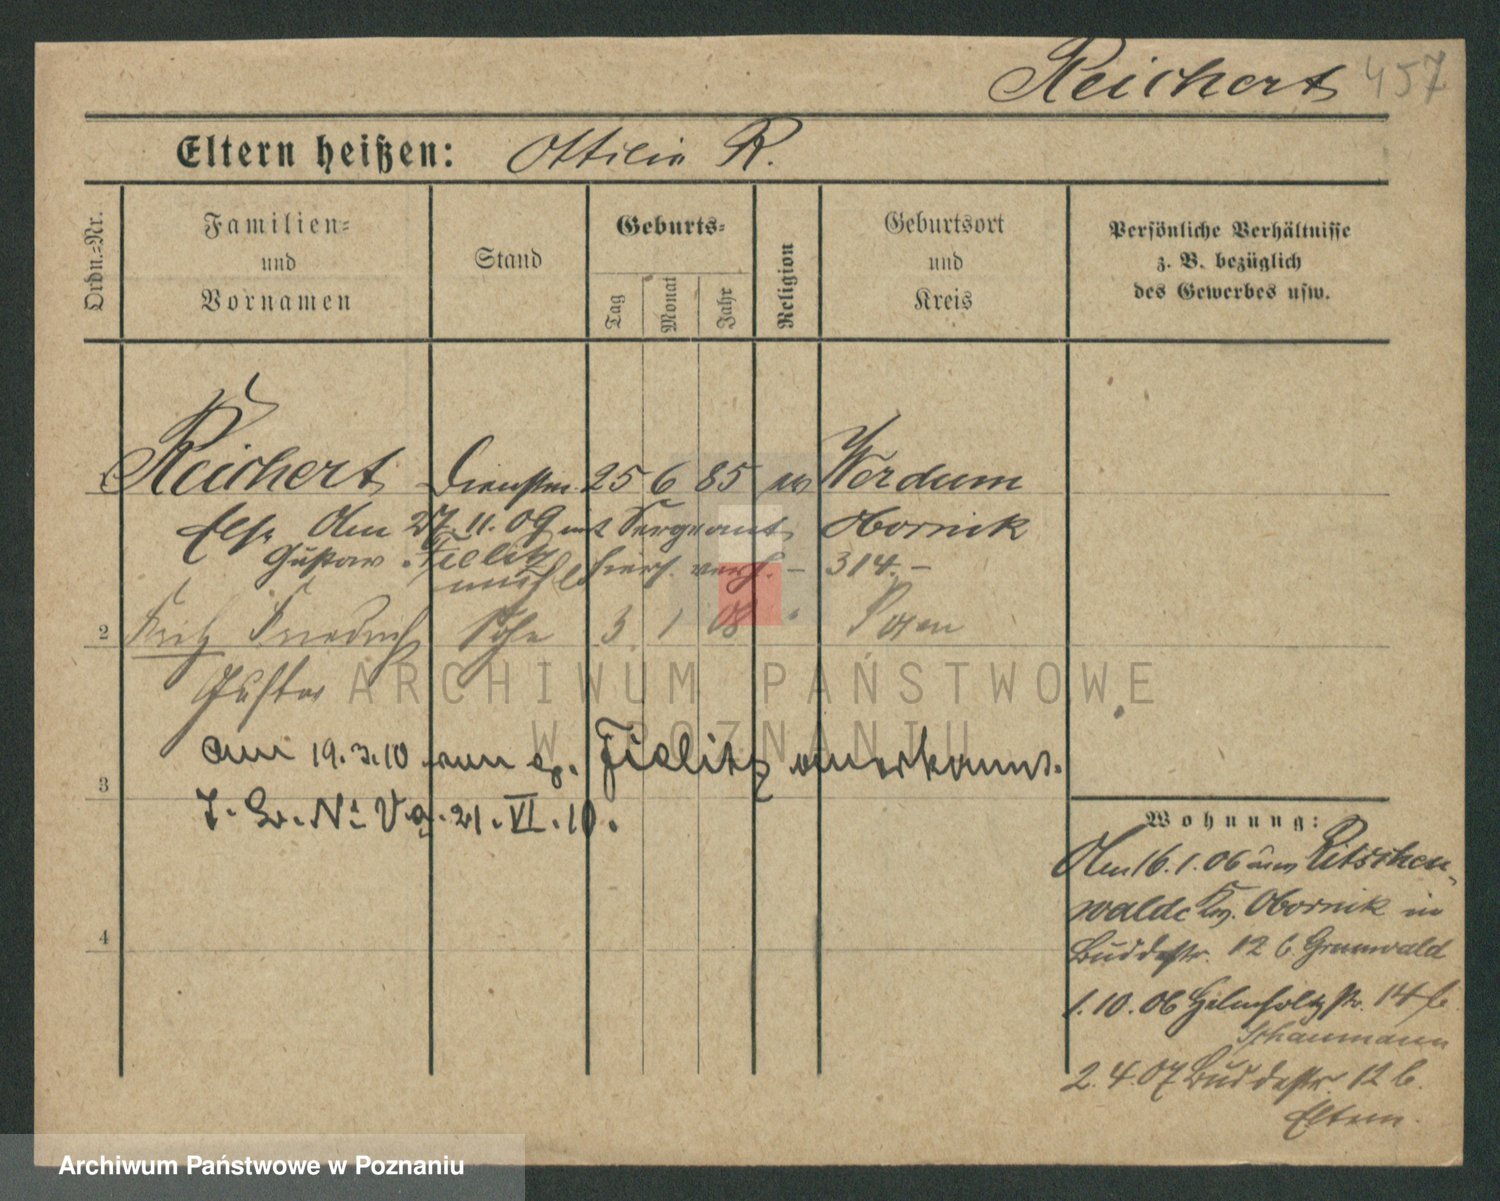 Reichert 457
Eltern heißen: Ottilie R.
Ordn.-Nr.
Familien-
und
Vornamen
Stand
Geburts-
Tag
Monat
Jahr
Religion
Geburtsort
und
Kreis
Persönliche Verhältnisse
z. B. bezüglich
des Gewerbes usw.
Reichert 25 6 85 ev Werdum
Else Am 27.11.09 mit Sergeant Obornik
Gustav Fielitz hier verh. – 314. –
2 Fritz Friedrich Sohn 3 1 08 Posen
Gustav
ARCHIWUM PAŃSTWOWE
W POZNANIU
am 19.3.10 von Fielitz anerkannt.
3
21.VI.10.
4
Wohnung:
Am 16.1.06 aus Ritschen-
walde Kr. Obornik in
Buddestr. 12 b. Grunwald
1.10.06 Helmholtzstr. 14 b.
Schaumann
2.4.07 Buddestr. 12 b.
Eltern.
Archiwum Państwowe w Poznaniu